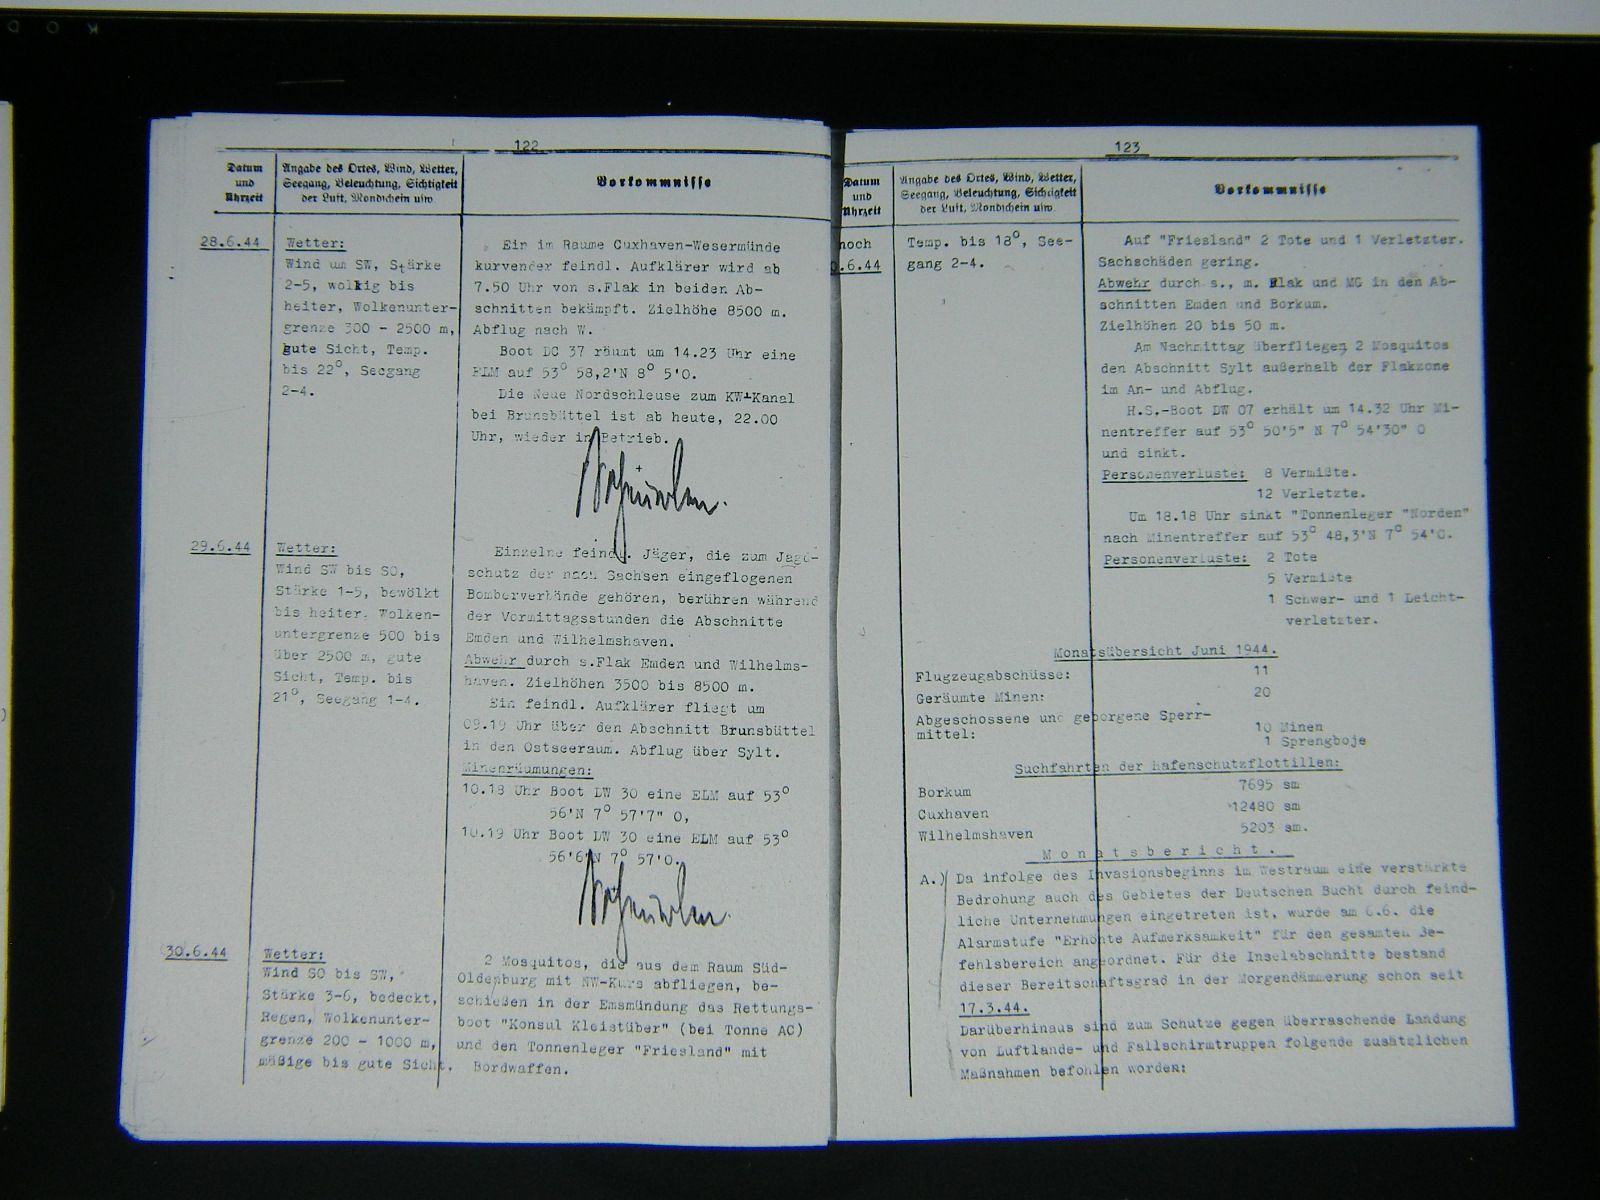 122
Datum
und
Uhrzeit
Angabe des Ortes, Wind, Wetter,
Seegang, Beleuchtung, Sichtigkeit
der Luft, Mondschein usw.
Vorkommnisse
28.6.44
Wetter:
Wind um SW, Stärke
2-5, wolkig bis
heiter, Wolkenunter-
grenze 300 - 2500 m,
gute Sicht, Temp.
bis 22°, Seegang
2-4.
Ein im Raume Cuxhaven-Wesermünde
kurvender feindl. Aufklärer wird ab
7.50 Uhr von s.Flak in beiden Ab-
schnitten bekämpft. Zielhöhe 8500 m.
Abflug nach W.
Boot DC 37 räumt um 14.23 Uhr eine
ELM auf 53° 58,2'N 8° 5'O.
Die Neue Nordschleuse zum KW-Kanal
bei Brunsbüttel ist ab heute, 22.00
Uhr, wieder in Betrieb.
29.6.44
Wetter:
Wind SW bis SO,
Stärke 1-5, bewölkt
bis heiter. Wolken-
untergrenze 500 bis
über 2500 m, gute
Sicht, Temp. bis
21°, Seegang 1-4.
Einzelne feindl. Jäger, die zum Jagd-
schutz der nach Sachsen eingeflogenen
Bomberverbände gehören, berühren während
der Vormittagsstunden die Abschnitte
Emden und Wilhelmshaven.
Abwehr durch s.Flak Emden und Wilhelms-
haven. Zielhöhen 3500 bis 8500 m.
Ein feindl. Aufklärer fliegt um
09.19 Uhr über den Abschnitt Brunsbüttel
in den Ostseeraum. Abflug über Sylt.
Minenräumungen:
10.18 Uhr Boot DW 30 eine ELM auf 53°
56'N 7° 57'7" O,
10.19 Uhr Boot DW 30 eine ELM auf 53°
56'6"N 7° 57'O.
30.6.44
Wetter:
Wind SO bis SW,
Stärke 3-6, bedeckt,
Regen, Wolkenunter-
grenze 200 - 1000 m,
mäßige bis gute Sicht.
2 Mosquitos, die aus dem Raum Süd-
Oldenburg mit NW-Kurs abfliegen, be-
schießen in der Emsmündung das Rettungs-
boot "Konsul Kleistüber" (bei Tonne AC)
und den Tonnenleger "Friesland" mit
Bordwaffen.
123
Datum
und
Uhrzeit
Angabe des Ortes, Wind, Wetter,
Seegang, Beleuchtung, Sichtigkeit
der Luft, Mondschein usw.
Vorkommnisse
noch
0.6.44
Temp. bis 18°, See-
gang 2-4.
Auf "Friesland" 2 Tote und 1 Verletzter.
Sachschäden gering.
Abwehr durch s., m. Flak und MG in den Ab-
schnitten Emden und Borkum.
Zielhöhen 20 bis 50 m.
Am Nachmittag überfliegen 2 Mosquitos
den Abschnitt Sylt außerhalb der Flakzone
im An- und Abflug.
H.S.-Boot DW 07 erhält um 14.32 Uhr Mi-
nentreffer auf 53° 50'5" N 7° 54'30" O
und sinkt.
Personenverluste: 8 Vermißte.
12 Verletzte.
Um 18.18 Uhr sinkt "Tonnenleger "Norden"
nach Minentreffer auf 53° 48,3'N 7° 54'O.
Personenverluste: 2 Tote
5 Vermißte
1 Schwer- und 1 Leicht-
verletzter.
Monatsübersicht Juni 1944.
Flugzeugabschüsse: 11
Geräumte Minen: 20
Abgeschossene und geborgene Sperr-
mittel: 10 Minen
1 Sprengboje
Suchfahrten der Hafenschutzflottillen:
Borkum 7695 sm
Cuxhaven 12480 sm
Wilhelmshaven 5203 sm.
Monatsbericht.
A.) Da infolge des Invasionsbeginns im Westraum eine verstärkte
Bedrohung auch des Gebietes der Deutschen Bucht durch feind-
liche Unternehmungen eingetreten ist, wurde am 6.6. die
Alarmstufe "Erhöhte Aufmerksamkeit" für den gesamten Be-
fehlsbereich angeordnet. Für die Inselabschnitte bestand
dieser Bereitschaftsgrad in der Morgendämmerung schon seit
17.3.44.
Darüberhinaus sind zum Schutze gegen überraschende Landung
von Luftlande- und Fallschirmtruppen folgende zusätzlichen
Maßnahmen befohlen worden: